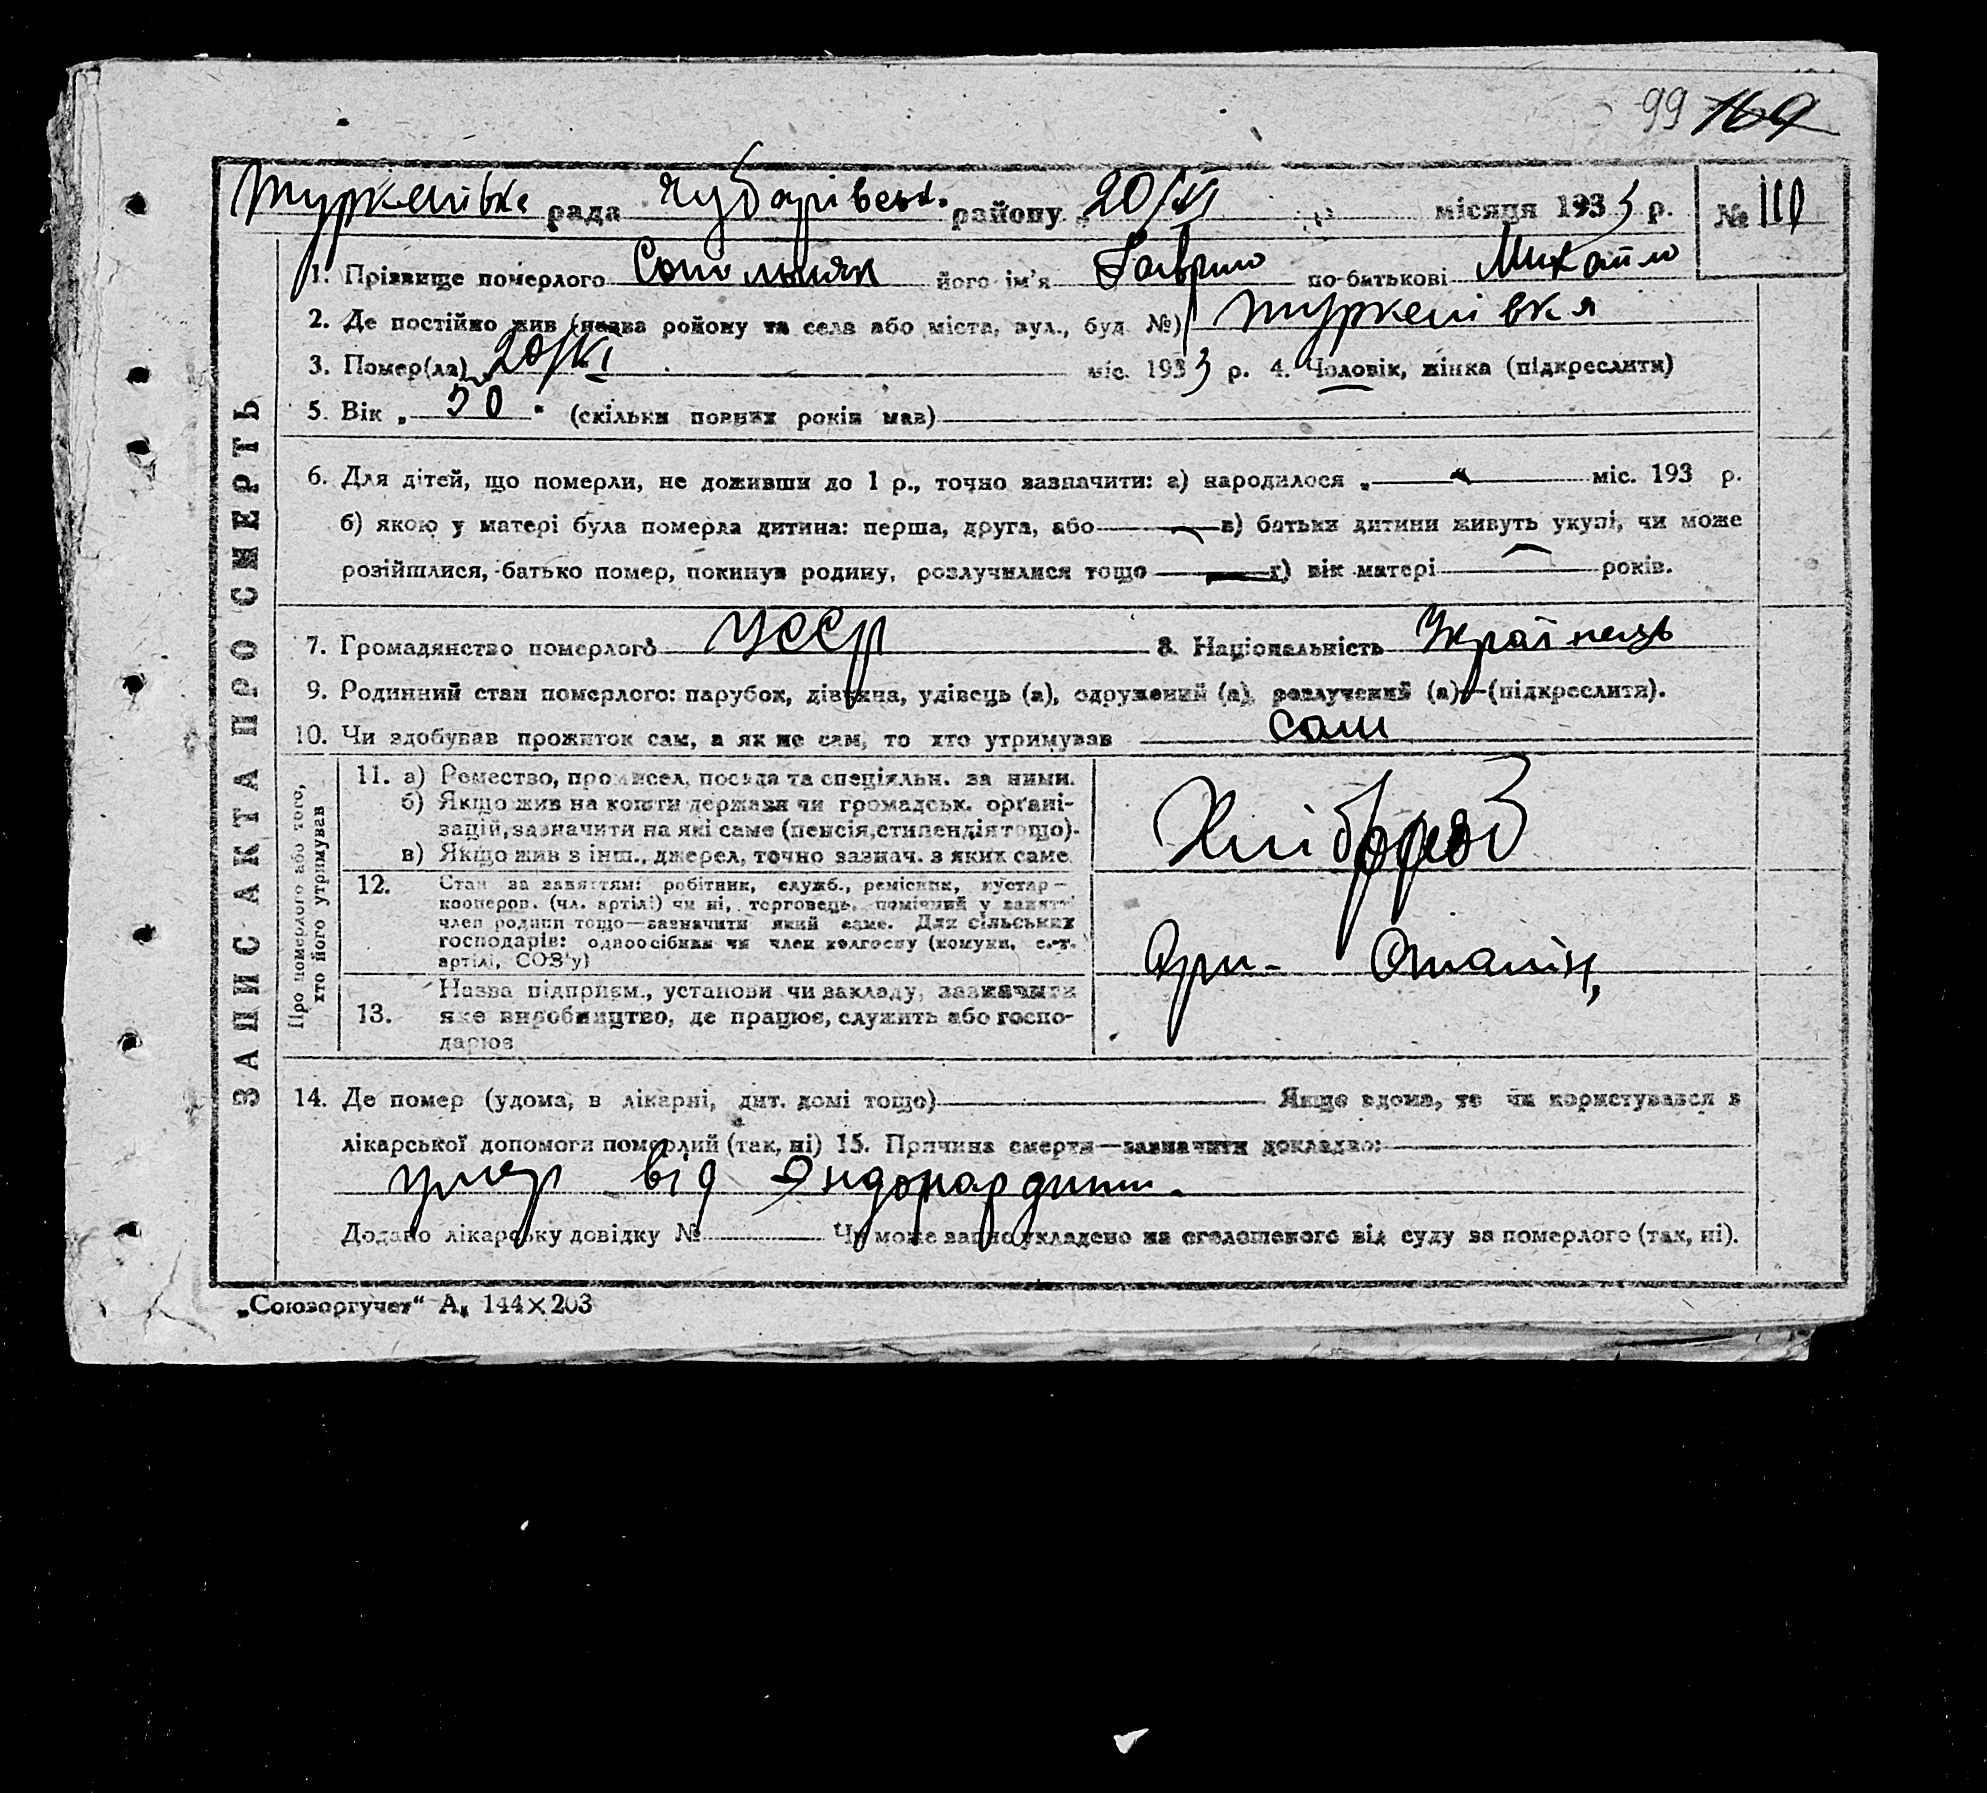 99 169
Туркенівка рада Чубарівськ. району „20/XI місяця 1933 р. № 110
1. Прізвище померлого його ім'я Гаврило по-батькові Михайло
2. Де постійно жив (назва району та села або міста, вул., буд. №) Туркенівка
3. Помер(ла) 20/XI міс. 1933 р. 4. Чоловік, жінка (підкреслити)
5. Вік „ 50 " (скільки повних років мав)
6. Для дітей, що померли, не доживши до 1 р., точно зазначити: а) народилося „ " міс. 193 р.
б) якою у матері була померла дитина: перша, друга, або в) батьки дитини живуть укупі, чи може
розійшлися, батько помер, покинув родину, розлучилися тощо г) вік матері років.
7. Громадянство померлого УССР 8. Національність Українець
9. Родинний стан померлого: парубок, дівчина, удівець (а), одружений (а), розлучений (а)—(підкреслити).
10. Чи здобував прожиток сам, а як не сам, то хто утримував сам
ЗАПИС АКТА ПРО СМЕРТЬ
Про померлого або того,
хто його утримував
11. а) Ремество, промисел, посада та спеціяльн. за ними.
б) Якщо жив на кошти держави чи громадськ. органі-
зацій, зазначити на які саме (пенсія, стипендія тощо).
в) Якщо жив з інш., джерел, точно зазнач. з яких саме
Хлібороб
12. Стан за заняттям: робітник, служб., ремісник, кустар—
кооперов. (чл. артілі) чи ні, торговець, помічний у занятті
член родини тощо—зазначити який саме. Для сільських
господарів: одноосібник чи член колгоспу (комуни, с.-г.
артілі, СОЗ'у)
13. Назва підприєм., установи чи закладу, зазначити
яке виробництво, де працює, служить або госпо-
дарює
14. Де помер (удома, в лікарні, дит. домі тощо) Якщо вдома, то чи користувався з
лікарської допомоги померлий (так, ні) 15. Причина смерти—зазначити докладно:
умер від Эндокардити.
Додано лікарську довідку № Чи може запис укладено на оголошеного від суду за померлого (так, ні).
„Союзоргучет" А₅ 144×203